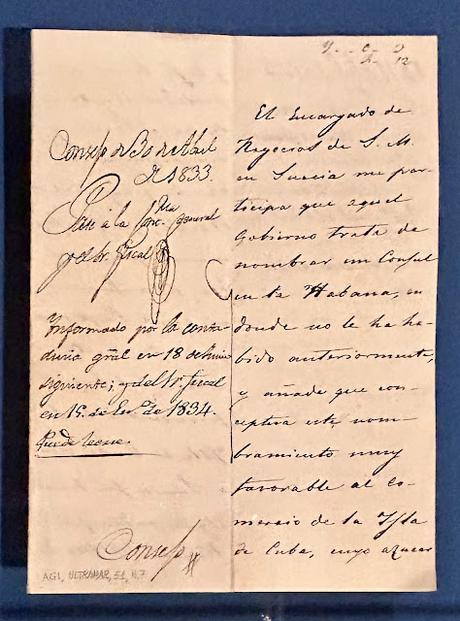 Consejo de 30 de Abril
de 1833.
Pase á la Cont.ria general
y al Sr. fiscal
Informado por la conta-
duria gral en 18 de Junio
siguiente; y del Sr. fiscal
en 15. de En.º de 1834.
Puede leerse.
Consejo
AGI, ULTRAMAR, 51, N.7
El Encargado de
Negocios de S. M.
en Suecia me par-
ticipa que aquel
Gobierno trata de
nombrar un Consul
en la Habana, en
donde no le ha ha-
bido anteriormente,
y añade que con-
ceptua este nom-
bramiento muy
favorable al Co-
mercio de la Ysla
de Cuba, cuyo azucar